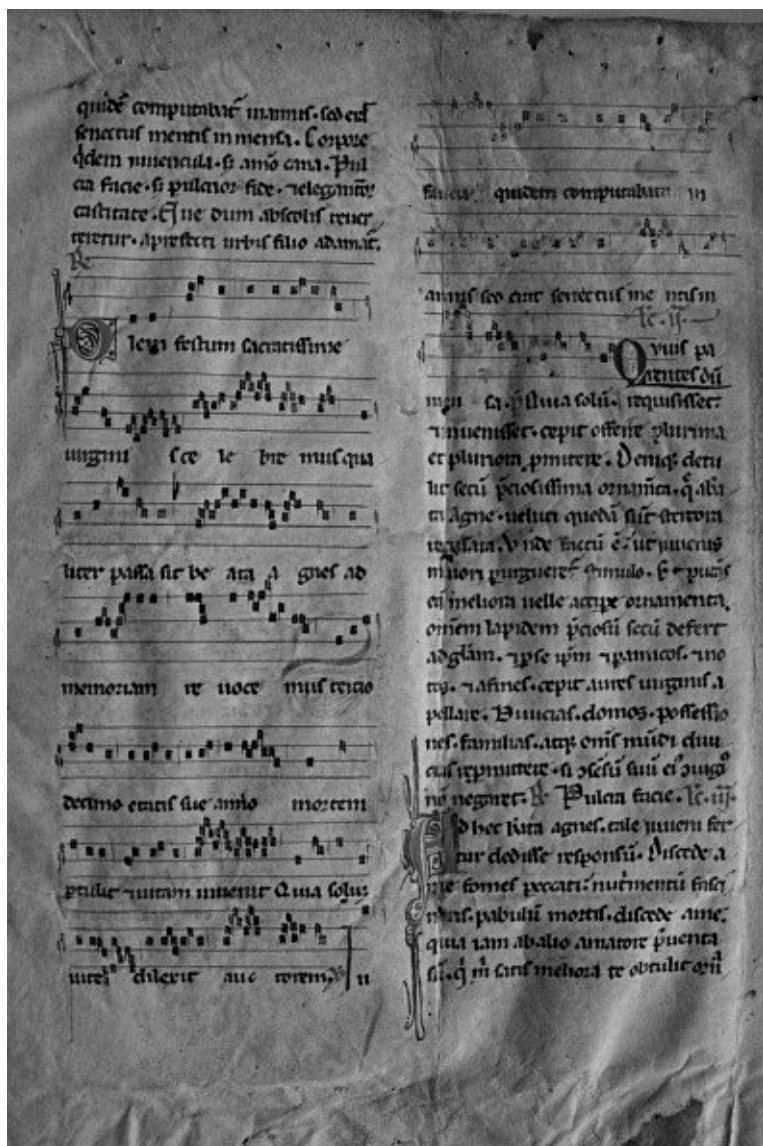 quidē computabat̄ in annis. sed erat
senectus mentis in mensa. Corpore
qdem iuvencula. sz animo cana. Pul
cra facie. sz pulcrior fide. ⁊ elegantior
castitate. Que dum a scolis rever
teretur. a prefecti urbis filio adamat̄.
R̷
Diem festum sacratissime
virgini s ce le bre mus qua
liter passa sit be ata a gnes ad
memoriam re voce mus tercio
decimo etatis sue anno mortem
p̄didit ⁊ vitam invenit Quia solum
vite dilexit auc torem. V̷ In
fancia quidem computabatur in
annis sed erat senectus me ntis in
lc̄. ii.
men sa. Q uius pa
rentes dū
p̄stitua solū. requisisset.
⁊ invenisset. cepit offerre plurima
et pluriora p̄mittere. Deniq; detu
lit secū p̄ciosissima ornam̄ta. q̄ a b̄a
ta Agne. veluti quedā sūt stercora
recusata. Vnde factū ē. ut iuvenis
maiori purgueret̄ stimulo. sz ⁊ putās
eā meliora velle accipe ornamenta.
omnem lapidem p̄ciosū secū defert
ad glām. ⁊ p se ipm̄ ⁊ p amicos. ⁊ no
tos. ⁊ afines. cepit aures virginis a
pellare. Divicias. domos. possessio
nes. familias. atq; om̄s mūdi divi
cias repmittere. si ɔsēsū suū ei' ɔiugio
nō negaret. R̷ Pulcra facie. lc̄. iii.
Ad hec b̄ata agnes. tale iuveni fer
tur dedisse responsū. Discede a
me fomes peccati. nut̄mentū faci
noris. pabulū mortis. discede a me.
quia iam ab alio amatore p̄venta
sū. q̄ m̄ satis meliora te obtulit orn̄